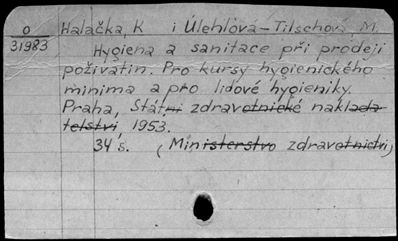 O
31983
Halačka, K i Úlehlová-Tilschová, M.
Hygiena a sanitace při prodeji
poživatin. Pro kursy hygienického
minima a pro lidové hygieniky.
Praha, Státní zdravotnické naklada
telství, 1953.
34 s. (Ministerstvo zdravotnictví)